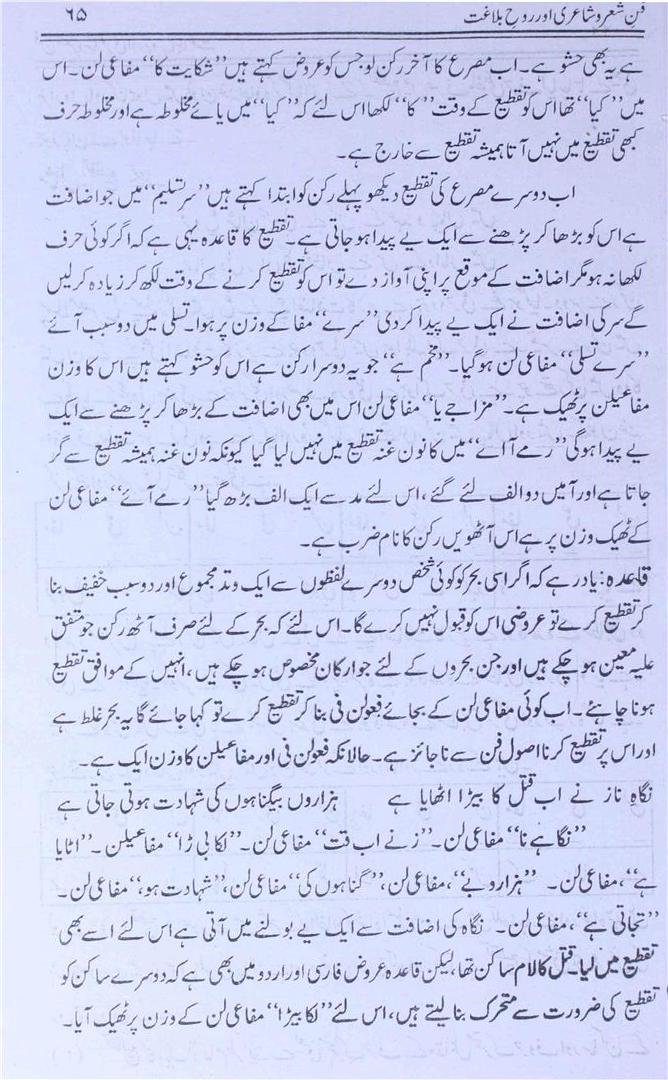 فن شعر و شاعری اور روح بلاغت ۶۵
ہے یہ بھی حشو ہے۔ اب مصرع کا آخر رکن لو جس کو عروض کہتے ہیں ’’شکایت کا‘‘ مفاعی لن۔ اس
میں ’’کیا‘‘ تھا اس کو تقطیع کے وقت ’’کا‘‘ لکھا اس لئے کہ ’’کیا‘‘ میں یائے مخلوطہ ہے اور مخلوطہ حرف
کبھی تقطیع میں نہیں آتا ہمیشہ تقطیع سے خارج ہے۔
اب دوسرے مصرع کی تقطیع دیکھو پہلے رکن کو ابتدا کہتے ہیں ’’سر تسلیم‘‘ میں جو اضافت
ہے اس کو بڑھا کر پڑھنے سے ایک یے پیدا ہو جاتی ہے۔ تقطیع کا قاعدہ یہی ہے کہ اگر کوئی حرف
لکھا نہ ہو مگر اضافت کے موقع پر اپنی آواز دے تو اس کو تقطیع کرنے کے وقت لکھ کر زیادہ کر لیں
گے سر کی اضافت نے ایک یے پیدا کر دی ’’سرے‘‘ مفا کے وزن پر ہوا۔ تسلی میں دو سبب آئے
’’سرے تسلی‘‘ مفاعی لن ہو گیا۔ ’’مخم ہے‘‘ جو یہ دوسرا رکن ہے اس کو حشو کہتے ہیں اس کا وزن
مفاعیلن پر ٹھیک ہے۔ ’’مزاجے یا‘‘ مفاعی لن اس میں بھی اضافت کے بڑھا کر پڑھنے سے ایک
یے پیدا ہوگی ’’رمے آاے‘‘ میں کا نون غنہ تقطیع میں نہیں لیا گیا کیونکہ نون غنہ ہمیشہ تقطیع سے گر
جاتا ہے اور آمیں دو الف لئے گئے، اس لئے مد سے ایک الف بڑھ گیا ’’رمے آئے‘‘ مفاعی لن
کے ٹھیک وزن پر ہے اس آٹھویں رکن کا نام ضرب ہے۔
قاعدہ: یاد رہے کہ اگر اسی بحر کو کوئی شخص دوسرے لفظوں سے ایک وتد مجموع اور دو سبب خفیف بنا
کر تقطیع کرے تو عروضی اس کو قبول نہیں کرے گا۔ اس لئے کہ بحر کے لئے صرف آٹھ رکن جو متفق
علیہ معین ہو چکے ہیں اور جن بحروں کے لئے جو ارکان مخصوص ہو چکے ہیں، انہیں کے موافق تقطیع
ہونا چاہئے۔ اب کوئی مفاعی لن کے بجائے فعولن فی بنا کر تقطیع کرے تو کہا جائے گا یہ بحر غلط ہے
اور اس پر تقطیع کرنا اصول فن سے ناجائز ہے۔ حالانکہ فعولن فی اور مفاعیلن کا وزن ایک ہے۔
نگاہِ ناز نے اب قتل کا بیڑا اٹھایا ہے ہزاروں بیگناہوں کی شہادت ہوتی جاتی ہے
’’نگاہے نا‘‘ مفاعی لن۔ ’’زنے اب قت‘‘ مفاعی لن۔ ’’لکا بی ڑا‘‘ مفاعیلن۔ ’’اٹایا
ہے‘‘، مفاعی لن۔ ’’ہزارو بے‘‘، مفاعی لن، ’’گناہوں کی‘‘ مفاعی لن، ’’شہادت ہو‘‘، مفاعی لن۔
’’تجاتی ہے‘‘، مفاعی لن۔ نگاہ کی اضافت سے ایک یے بولنے میں آتی ہے اس لئے اسے بھی
تقطیع میں لیا۔ قتل کا لام ساکن تھا، لیکن قاعدہ عروض فارسی اور اردو میں بھی ہے کہ دوسرے ساکن کو
تقطیع کی ضرورت سے متحرک بنا لیتے ہیں، اس لئے ’’لکا بیڑا‘‘ مفاعی لن کے وزن پر ٹھیک آیا۔